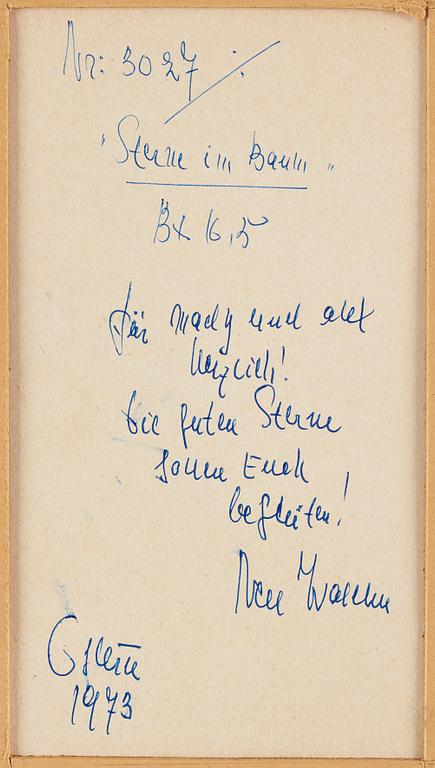 Nr: 3027 ·/.
"Sterne im Baum"
x 16,5
Für Mady und Alex
herzlich!
Die guten Sterne
sollen Euch
begleiten!
Nell Walden
Ostern
1973